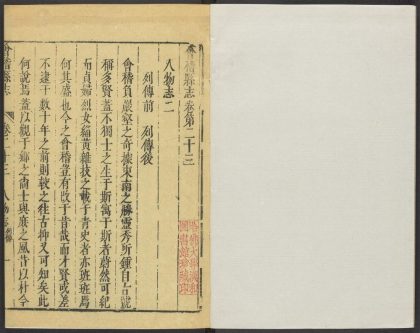 會稽縣志卷第二十三
人物志二
列傳前 列傳後
會稽負巖壑之奇據東南之勝靈秀所鍾自古號
稱多賢蓋不獨士之生于斯寓于斯者蔚然可紀
而貞婦烈女緇黃雜技之載于青史者亦班班焉
何其盛也今之會稽豈有改于昔哉而才賢或差
不逮于數十年之前則較之往古抑又可知矣此
何說焉蓋以觀于鄉之尚士與庭之風昔以朴今
會稽縣志
卷二十三
人物志